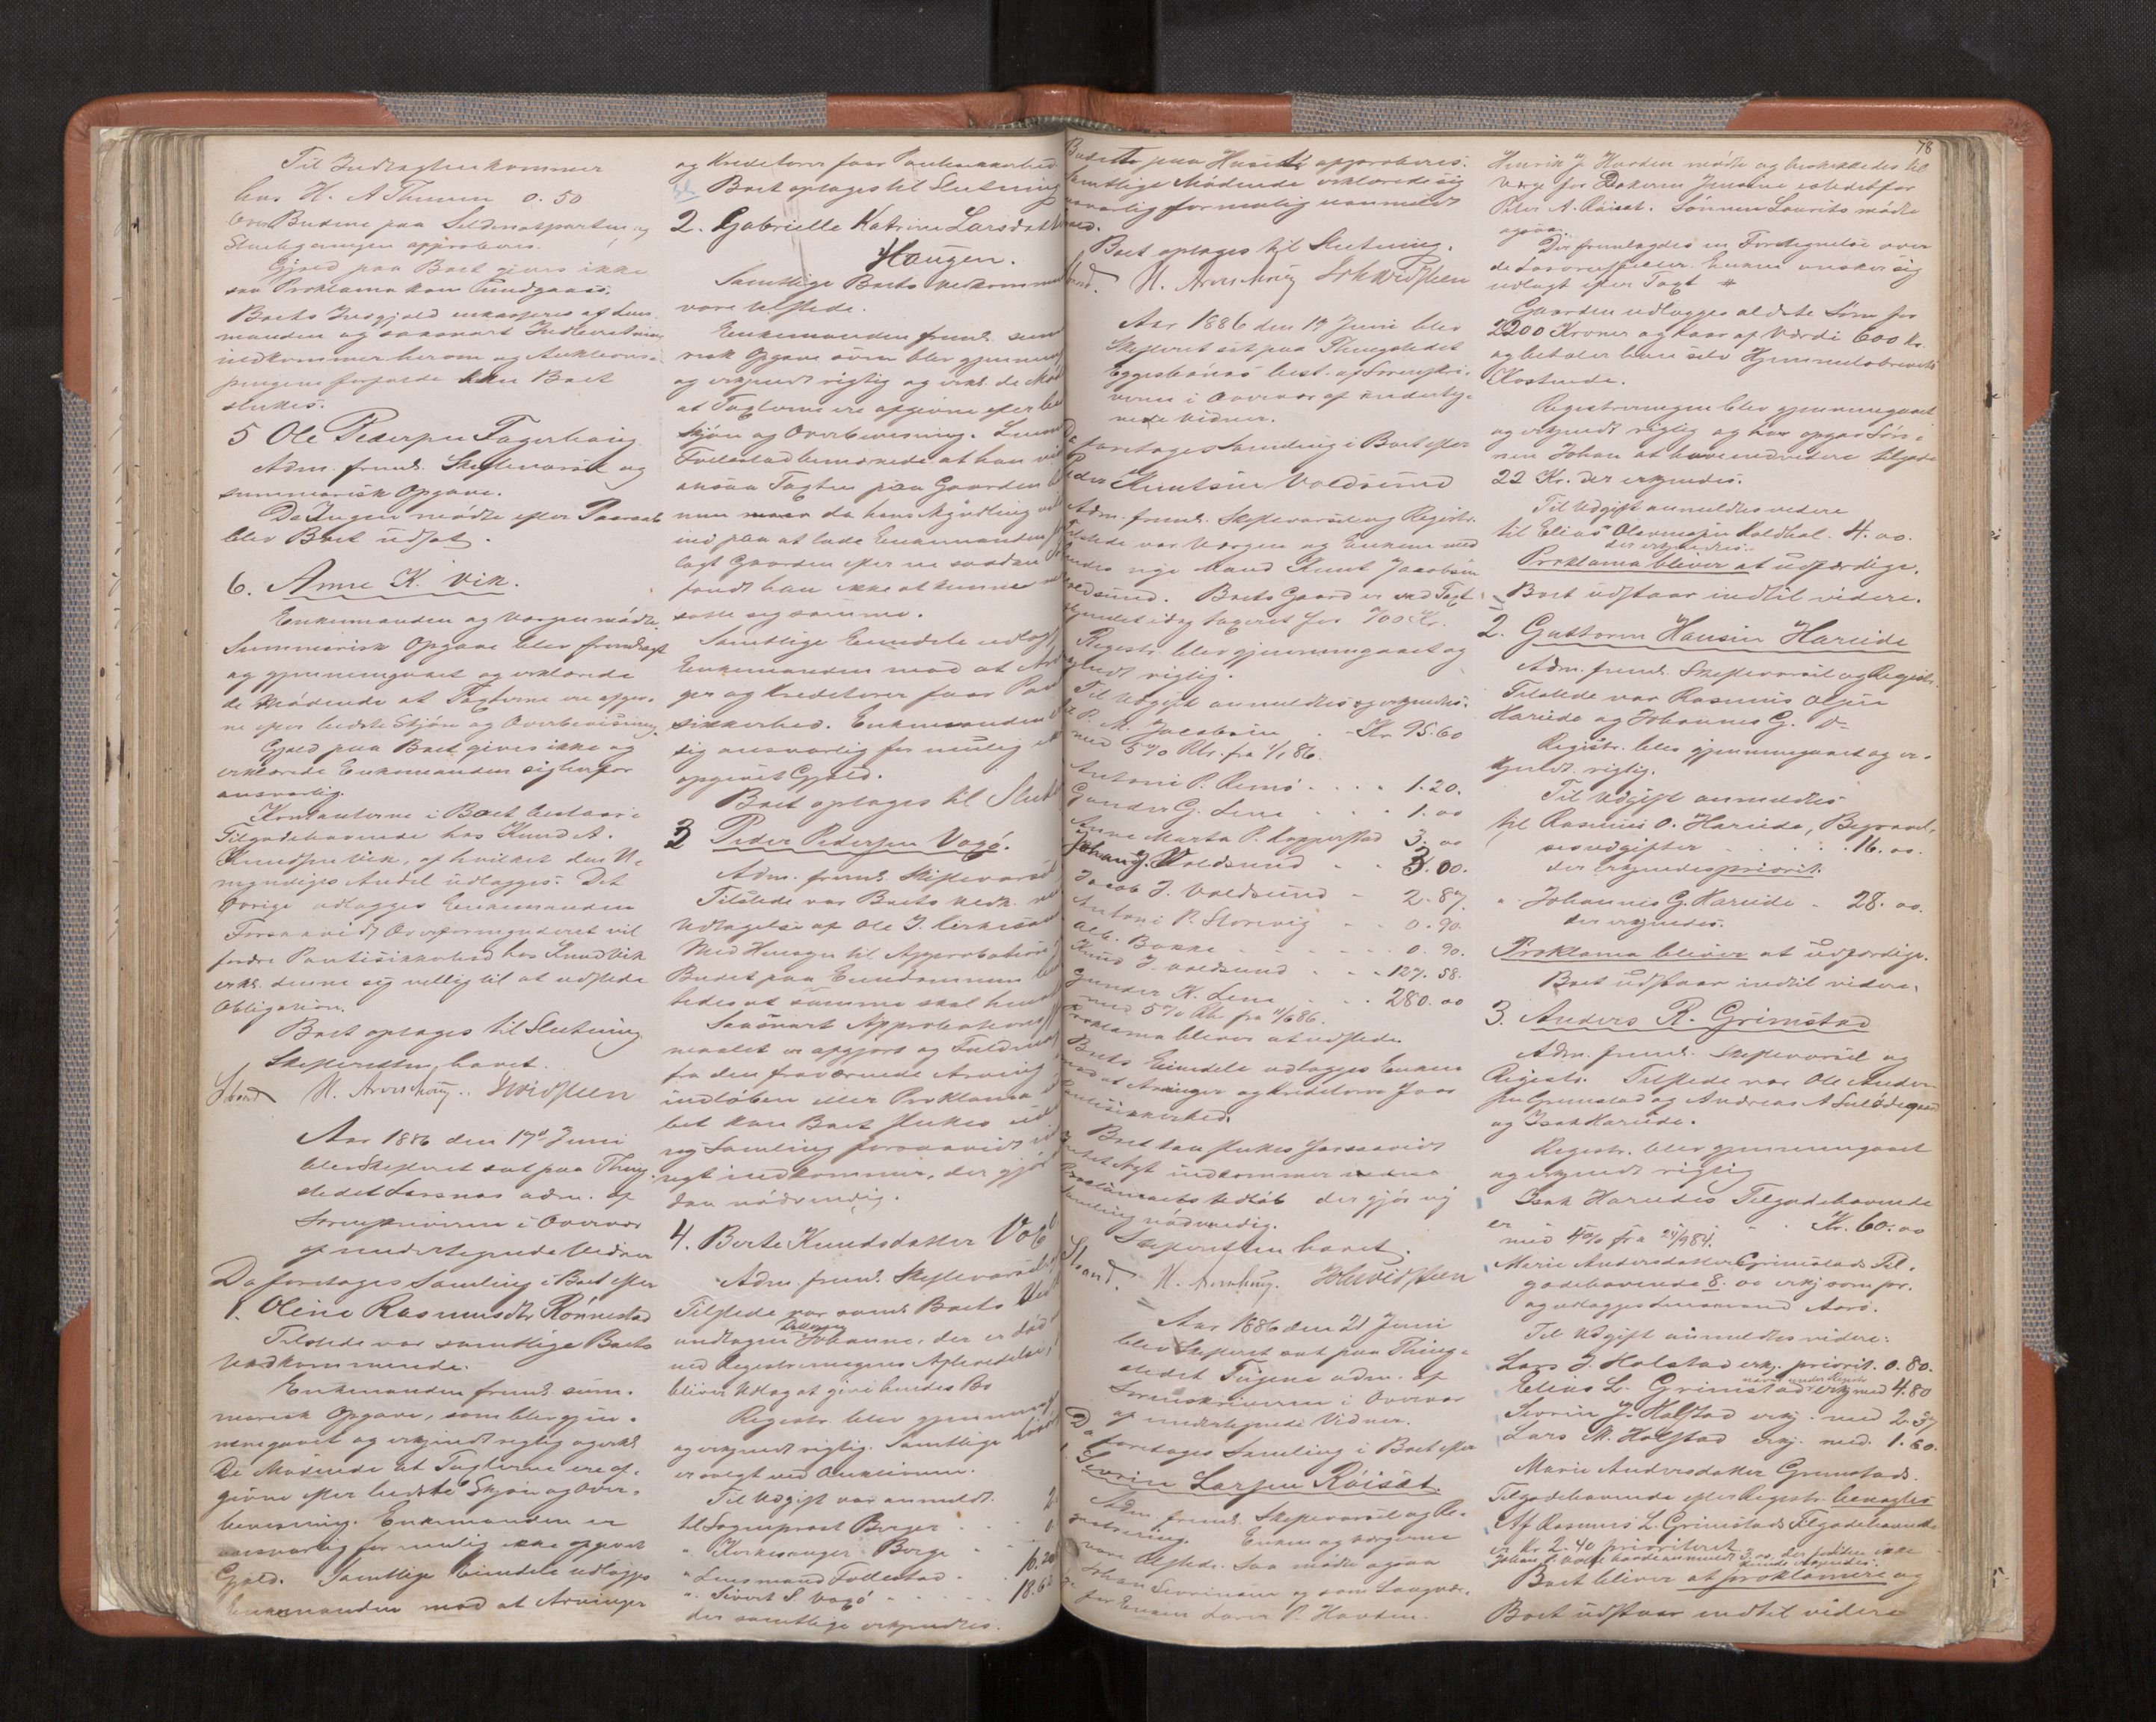 Til Indtægten kommer
hos H. A Thunem 0.50
Budene paa Sildenotsparten og
approberes.
Gjæld paa Boet gives ikke
saa Proklama kan undgaaes.
Boets Indgjæld inkasseres af Lens
manden og saasnart Indberetning
indkommer herom og Auktions-
pengene forfalde kan Boet
sluttes.
5 Ole Pedersen Fagerhaug
Adm. freml. Skiftevarsel og
summarisk Opgave.
Da Ingen mødte efter Paaraab
blev Boet udsat.
6. Anne K. Vik.
Enkemanden og Værgen mødte.
Summarisk Opgave blev fremlagt
og gjennemgaaet og erklærede
de Mødende at Taxterne ere afgiv-
ne efter bedste Skjøn og Overbevisning.
Gjæld paa Boet gives ikke og
erklærede Enkemanden sig herfor
ansvarlig.
Kontanterne i Boet bestaar i
Tilgodehavende hos Knud A.
Knudsen Vik, af hvilket den U-
myndiges Andel udlægges. Det
Øvrige udlægges Enkemanden
Forsaavidt Overformynderiet vil
fordre Pantesikkerhed hos Knud Vik
erkl. denne sig villig til at udstede
Obligation.
Boet optages til Slutning
Skifteretten hævet.
Strand H. Aarseth
Aar 1886 den 17d Juni
blev Skifteret sat paa Thing-
stedet Larsnæs adm. af
Sorenskriveren i Overvær
af undertegnede Vidner
Da foretages Samling i Boet efter
1. Oline Rasmusdtr Rönnestad
Tilstede var samtlige Boets
Vedkommende.
Enkemanden freml. sum-
marisk Opgave, som blev gjen-
nemgaaet og erkjendt rigtig og erkl.
De Mødende at Taxterne ere af-
givne efter bedste Skjøn og Over-
bevisning. Enkemanden er
ansvarlig for mulig ikke opgivet
Gjæld. Samtlige Eiendele udlægges
Enkemanden mod at Arvinger
og Kreditorer faar Pantesikkerhed.
Boet optages til Slutning
2. Gabrielle Katrine Larsdatter
Haugen.
Samtlige Boets Vedkommende
vare tilstede.
Enkemanden freml. sum
risk Opgave som blev gjennemg
og erkjendt rigtig og erkl. de Mød
at Taxterne ere afgivne efter be
Skjøn og Overbevisning. Lensm
Follestad bemærkede at han vil
ansaa Taxten paa Gaarden
men da hans Myndling vil
ind paa at lade Enkemanden
lagt Gaarden efter en saadan
fandt han ikke at kunne mod
sætte sig samme.
Samtlige Eiendele udlægges
Enkemanden mod at Arvin
ger og Kreditorer faar Pant
sikkerhed. Enkemanden
sig ansvarlig for mulig ikke
opgivet Gjæld.
Boet optages til Slut
3 Peder Pedersen Vogö.
Adm. freml. Skiftevarsel
Tilstede var Boets Vedk. med
Undtagelse af Ole J.
Med Hensyn til Approbation
Budet paa Eiendommen
tedes at samme skal
Saasnart Approbations
maalet er afgjort og Fuldmagt
fra den fraværende Arving
indløben eller Proklama
bet kan Boet sluttes uden
ny Samling forsaavidt in
tegt indkommer, der gjør
dan nødvendig.
4. Berte Knudsdatter Vogö
Adm. freml. Skiftevarsel
Tilstede var saml. Boets Vedk
undtagen Datteren Johanne, der er død
ved Registreringens Afholdelse,
bliver Udlæg at give hendes Bo
Registr. blev gjennemg
og erkjendt rigtig. Samtlige Løsöre
er solgt ved Auktionen.
Til Udgift var anmeldt.
til Sogneprest Berger 2.
" Kirkesanger Berge
" Lensmand Follestad 16.20
" Sivert S. Vogö 18.6
der samtlige erkjendtes.
Budet paa Huset approberes.
Samtlige Mødende erklærede sig
ansvarlig for mulig uanmeldt
Boet optages til Slutning.
Strand. H. Aarseth
Aar 1886 den 19 Juni blev
Skifteret sat paa Thingstedet
Eggesbönæs best. af Sorenskri-
veren i Overvær af underteg-
nede Vidner.
Da foretages Samling i Boet efter
Peder Knutsen Voldsund
Adm. freml. Skiftevarsel og Registr.
Tilstede var Værgen og Enken med
hendes nye Mand Knut Jacobsen
Voldsund. Boets Gaard er ved Taxt
afhendet idag taxeret for 700 Kr.
Registr. blev gjennemgaaet og
erkjendt rigtig.
Til Udgift anmeldtes og erkjendtes:
til P. M. Jacobsen Kr 95.60
med 5% Rtr. fra 1/1 86.
Antoni P. Remö 1.20.
Gunder G. Lene 1.00
Anne Marta P. Kopperstad 3.00
Johan J. Voldsund 3.00.
Jacob J. Voldsund 2.87.
Antoni P. Storevig 0.90.
Alb. Bakke 0.90.
Knud J. Voldsund 127.58.
Gunder K. Lene 280.00
med 5% Rtr. fra 11/6 86.
Proklama bliver at udstede
Boets Eiendele udlægges Enken
mod at Arvinger og Kreditorer faar
Pantesikkerhed.
Boet kan sluttes forsaavidt
Intet Nyt indkommer inden
Proklamaets Udløb der gjør ny
Samling nødvendig.
Skifteretten hævet.
Strand. H. Aarseth.
Aar 1886 den 21 Juni
blev Skifteret sat paa Thing-
stedet Tuene adm. af
Sorenskriveren i Overvær
af undertegnede Vidner.
Da foretages Samling i Boet efter
1. Sevrin Larsen Röiset.
Adm. freml. Skiftevarsel og Re-
gistrering. Enken og Værgerne
vare tilstede. Saa mødte ogsaa
Johan Sevrinsen og som Laugvær-
ge for Enken Lars P. Havden.
78
Henrik J. Havden mødte og beskikkedes til
Værge for Datteren Jensine istedetfor
Peter A. Röiset. Sönnen Laurits mødte
ogsaa.
Der fremlagdes en Fortegnelse over
de Enken ønsker sig
udlagt efter Taxt #
Gaarden udlægges ældste Søn for
2200 Kroner og Kaar af Værdi 600 Kr.
og betaler han selv Hjemmelsbrevets
Kostende.
Registreringen blev gjennemgaaet
og erkjendt rigtig og har opgav Søn-
nen Johan at have endvidere tilgode
22 Kr. der erkjendtes.
Til Udgift anmeldtes videre
til Elias Olavesøn Koldhal. 4.00.
der erkjendtes.
Proklama bliver at udfærdige.
Boet udstaar indtil videre.
2. Guttorm Hansen Hareide
Adm. freml. Skiftevarsel og Registr.
Tilstede var Rasmus Olsen
Hareide og Johannes G. D-
Registr. blev gjennemgaaet og er-
kjendt rigtig.
Til Udgift anmeldtes
til Rasmus O. Hareide, Begravel-
sesudgifter 16.00.
der erkjendtes priorit.
" Johannes G. Hareide - 28.00.
der erkjendtes.
Proklama bliver at udfærdige.
Boet udstaar indtil videre.
3. Anders R. Grimstad
Adm. freml. Skiftevarsel og
Registr. Tilstede var Ole Ander-
sen Grimstad og Andreas A
og Isak Hareide.
Registr. blev gjennemgaaet
og erkjendt rigtig
Isak Hareides Tilgodehavende
er Kr. 60.00
med 4% fra 24/9 84.
Marie Andersdatter Grimstads Til-
godehavende 8.00 erkj som pr.
og udlægges Aarö.
Til Udgift anmeldtes videre:
Lars J. Holstad erkj. priorit. 0.80.
Elias L. Grimstad erkj med 4.80
Sevrin J. Holstad erkj. med 2.37
Lars M. Holstad erkj. med. 1.60.
Marie Andersdatter Grimstads
Tilgodehavende efter Registr. benægtes
Af Rasmus L. Grimstads Tilgodehavende
er Kr 2.40 prioriteret.
Boet bliver at proklamere og
Boet udstaar indtil videre